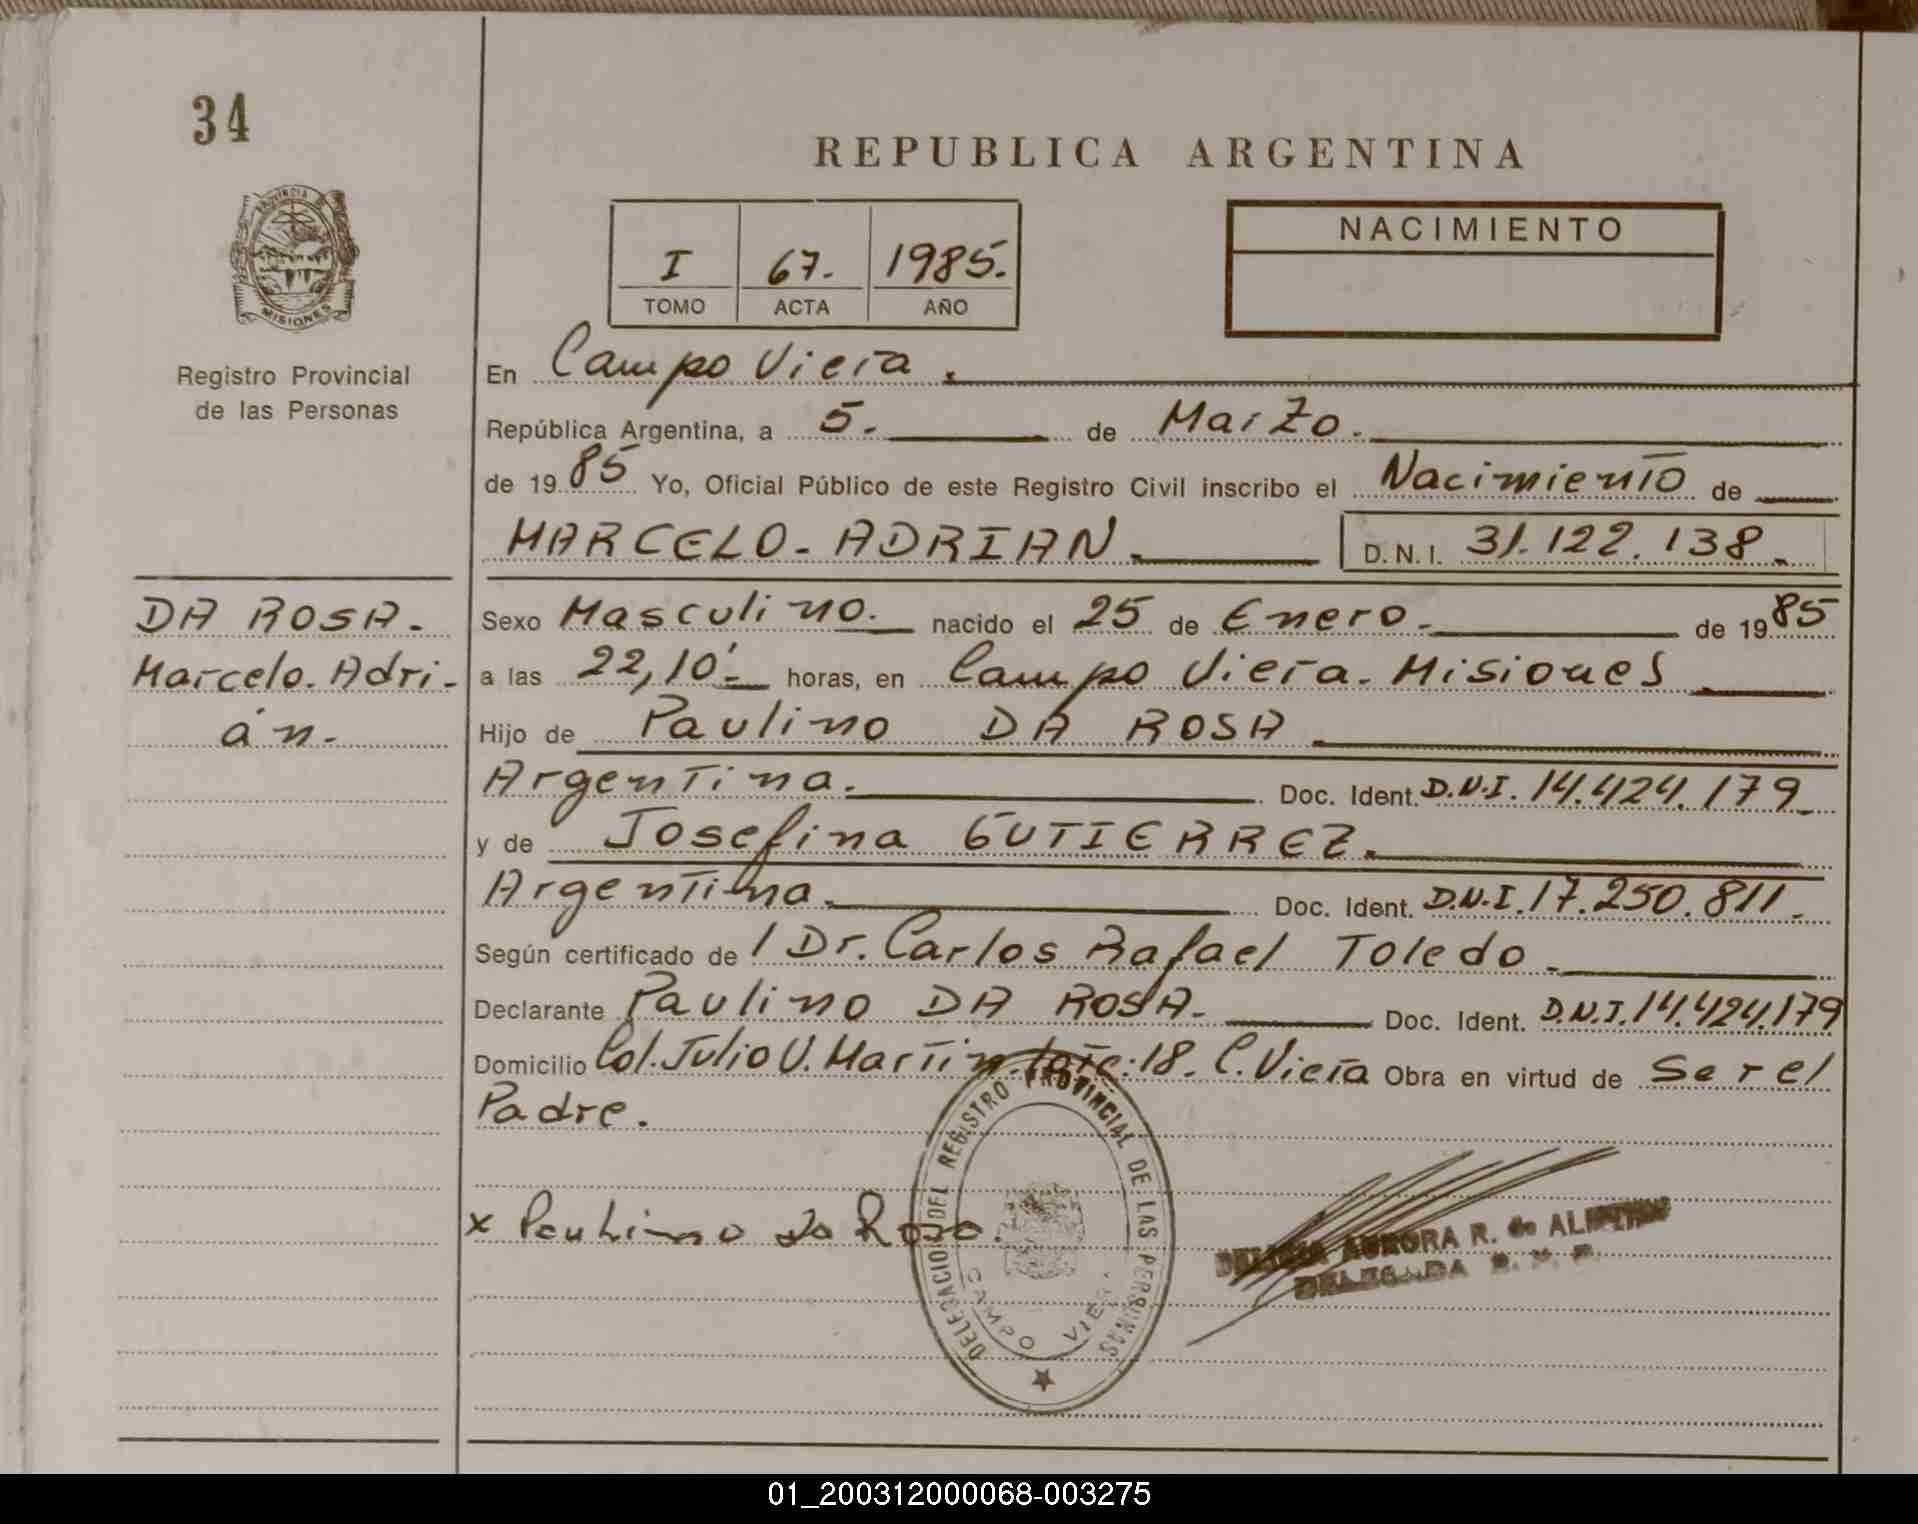 34
REPUBLICA ARGENTINA
PROVINCIA DE
MISIONES
I 67. 1985.
TOMO ACTA AÑO
NACIMIENTO
Registro Provincial
de las Personas
En Campo Viera.
República Argentina, a 5. de Marzo.
de 1985 Yo, Oficial Público de este Registro Civil inscribo el Nacimiento de
MARCELO-ADRIAN. D.N.I. 31.122.138.
DA ROSA.
Marcelo. Adri-
án.
Sexo Masculino. nacido el 25 de Enero. de 1985
a las 22,10'- horas, en Campo Viera. Misiones
Hijo de Paulino DA ROSA
Argentina. Doc. Ident. D.N.I. 14.424.179
y de Josefina GUTIERREZ.
Argentina. Doc. Ident. D.N.I. 17.250.811.
Según certificado de / Dr. Carlos Rafael Toledo
Declarante Paulino DA ROSA. Doc. Ident. D.N.I. 14.424.179
Domicilio Col. Julio U. Martin. lote: 18. C. Viera Obra en virtud de Ser el
Padre.
x Paulino da Rosa.
DELEGACION DEL REGISTRO PROVINCIAL DE LAS PERSONAS
CAMPO VIERA
AURORA R. de
DELEGADA R. P. P.
01_200312000068-003275